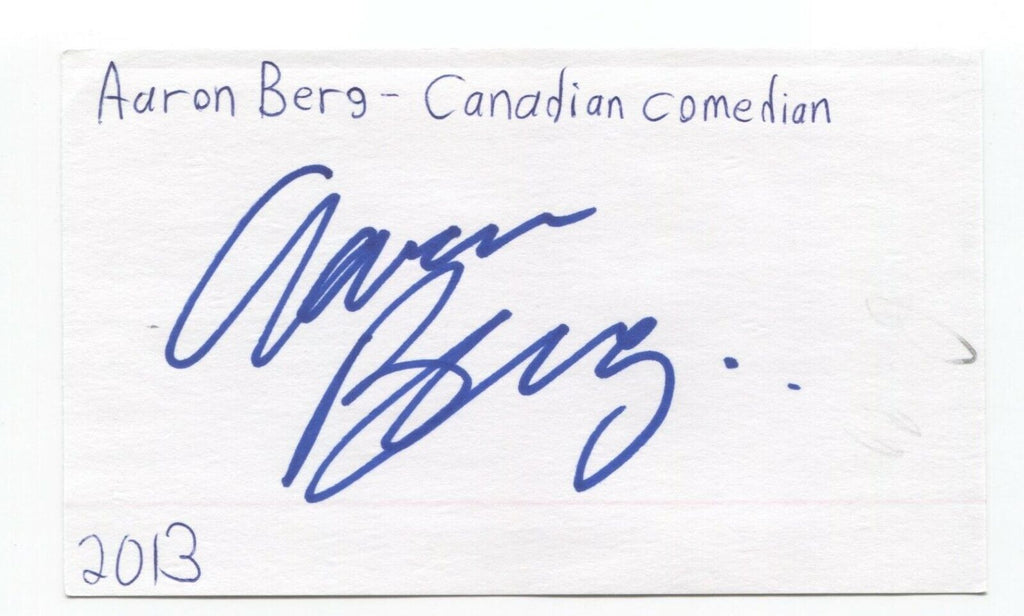 Aaron Berg - Canadian comedian
Aaron
Berg..
2013